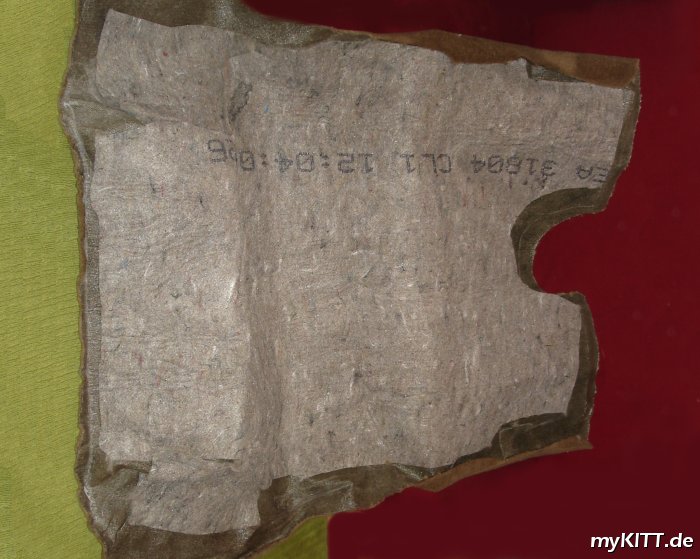 EA 31804 CL1 12:04:06
myKITT.de